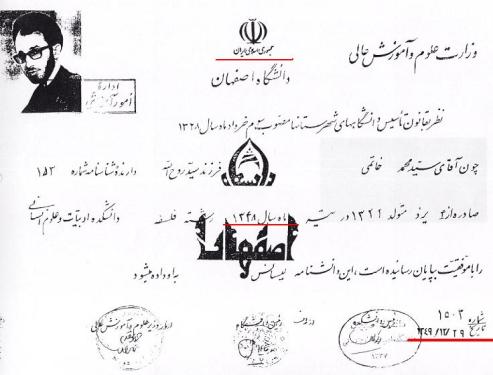 جمهوری اسلامی ایران
وزارت علوم و آموزش عالی
دانشگاه اصفهان
ادارهٔ
امور آموزش
نظر بقانون تأسیس دانشگاههای شهرستانها مصوب خرداد ماه سال ۱۳۲۸
چون آقای سید محمد خاتمی فرزند سید روح اله دارندهٔ شناسنامه شماره ۱۵۳
دانشگاه
صادره از یزد متولد ۱۳۲۲ در ماه سال ۱۳۴۸ رشته فلسفه دانشکده ادبیات و علوم انسانی
اصفهان
را با موفقیت بپایان رسانیده است، این دانشنامه لیسانس باو داده میشود
شماره ۱۵۰۳
تاریخ ۱۳۴۹/۱۲/۲۹
رئیس دانشگاه
وزیر علوم و آموزش عالی